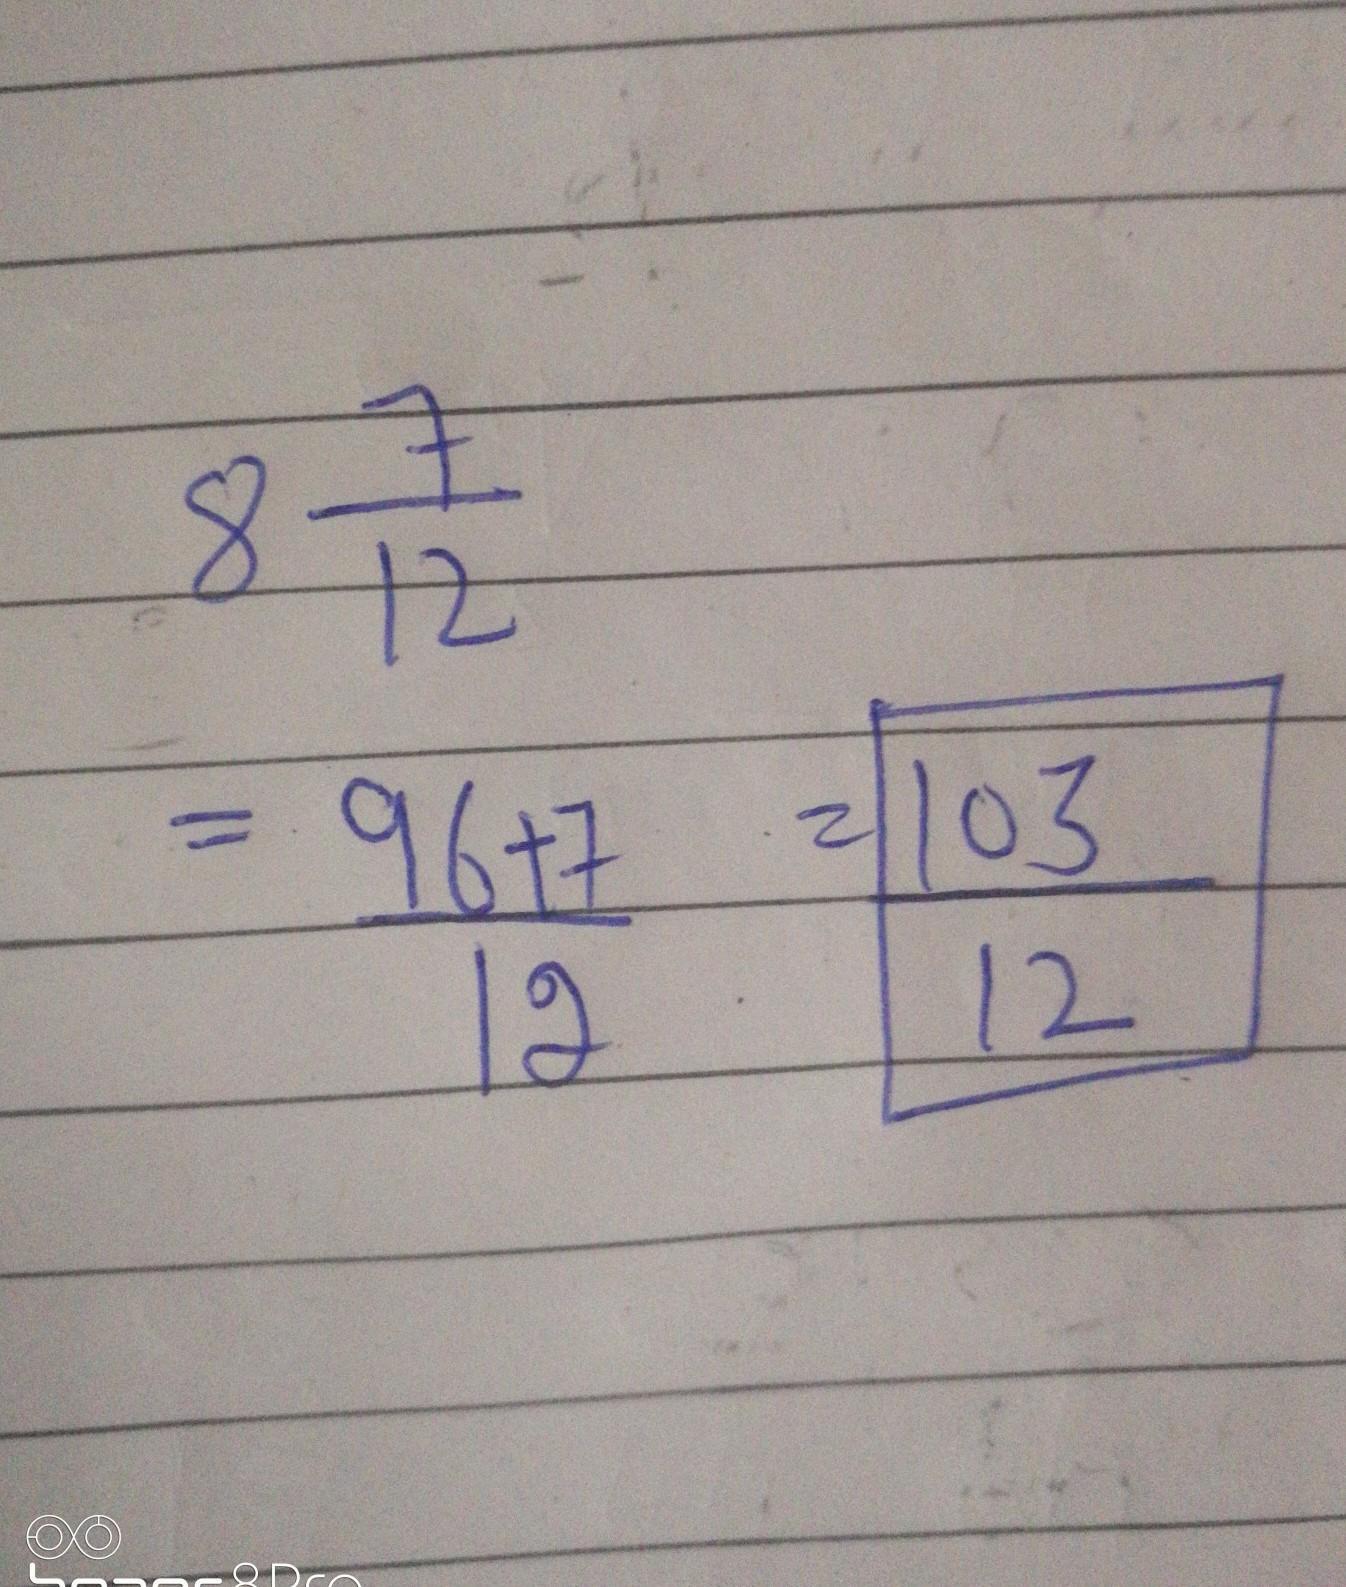 8 7/12
= 96+7/12 = 103/12
honor 8 Pro